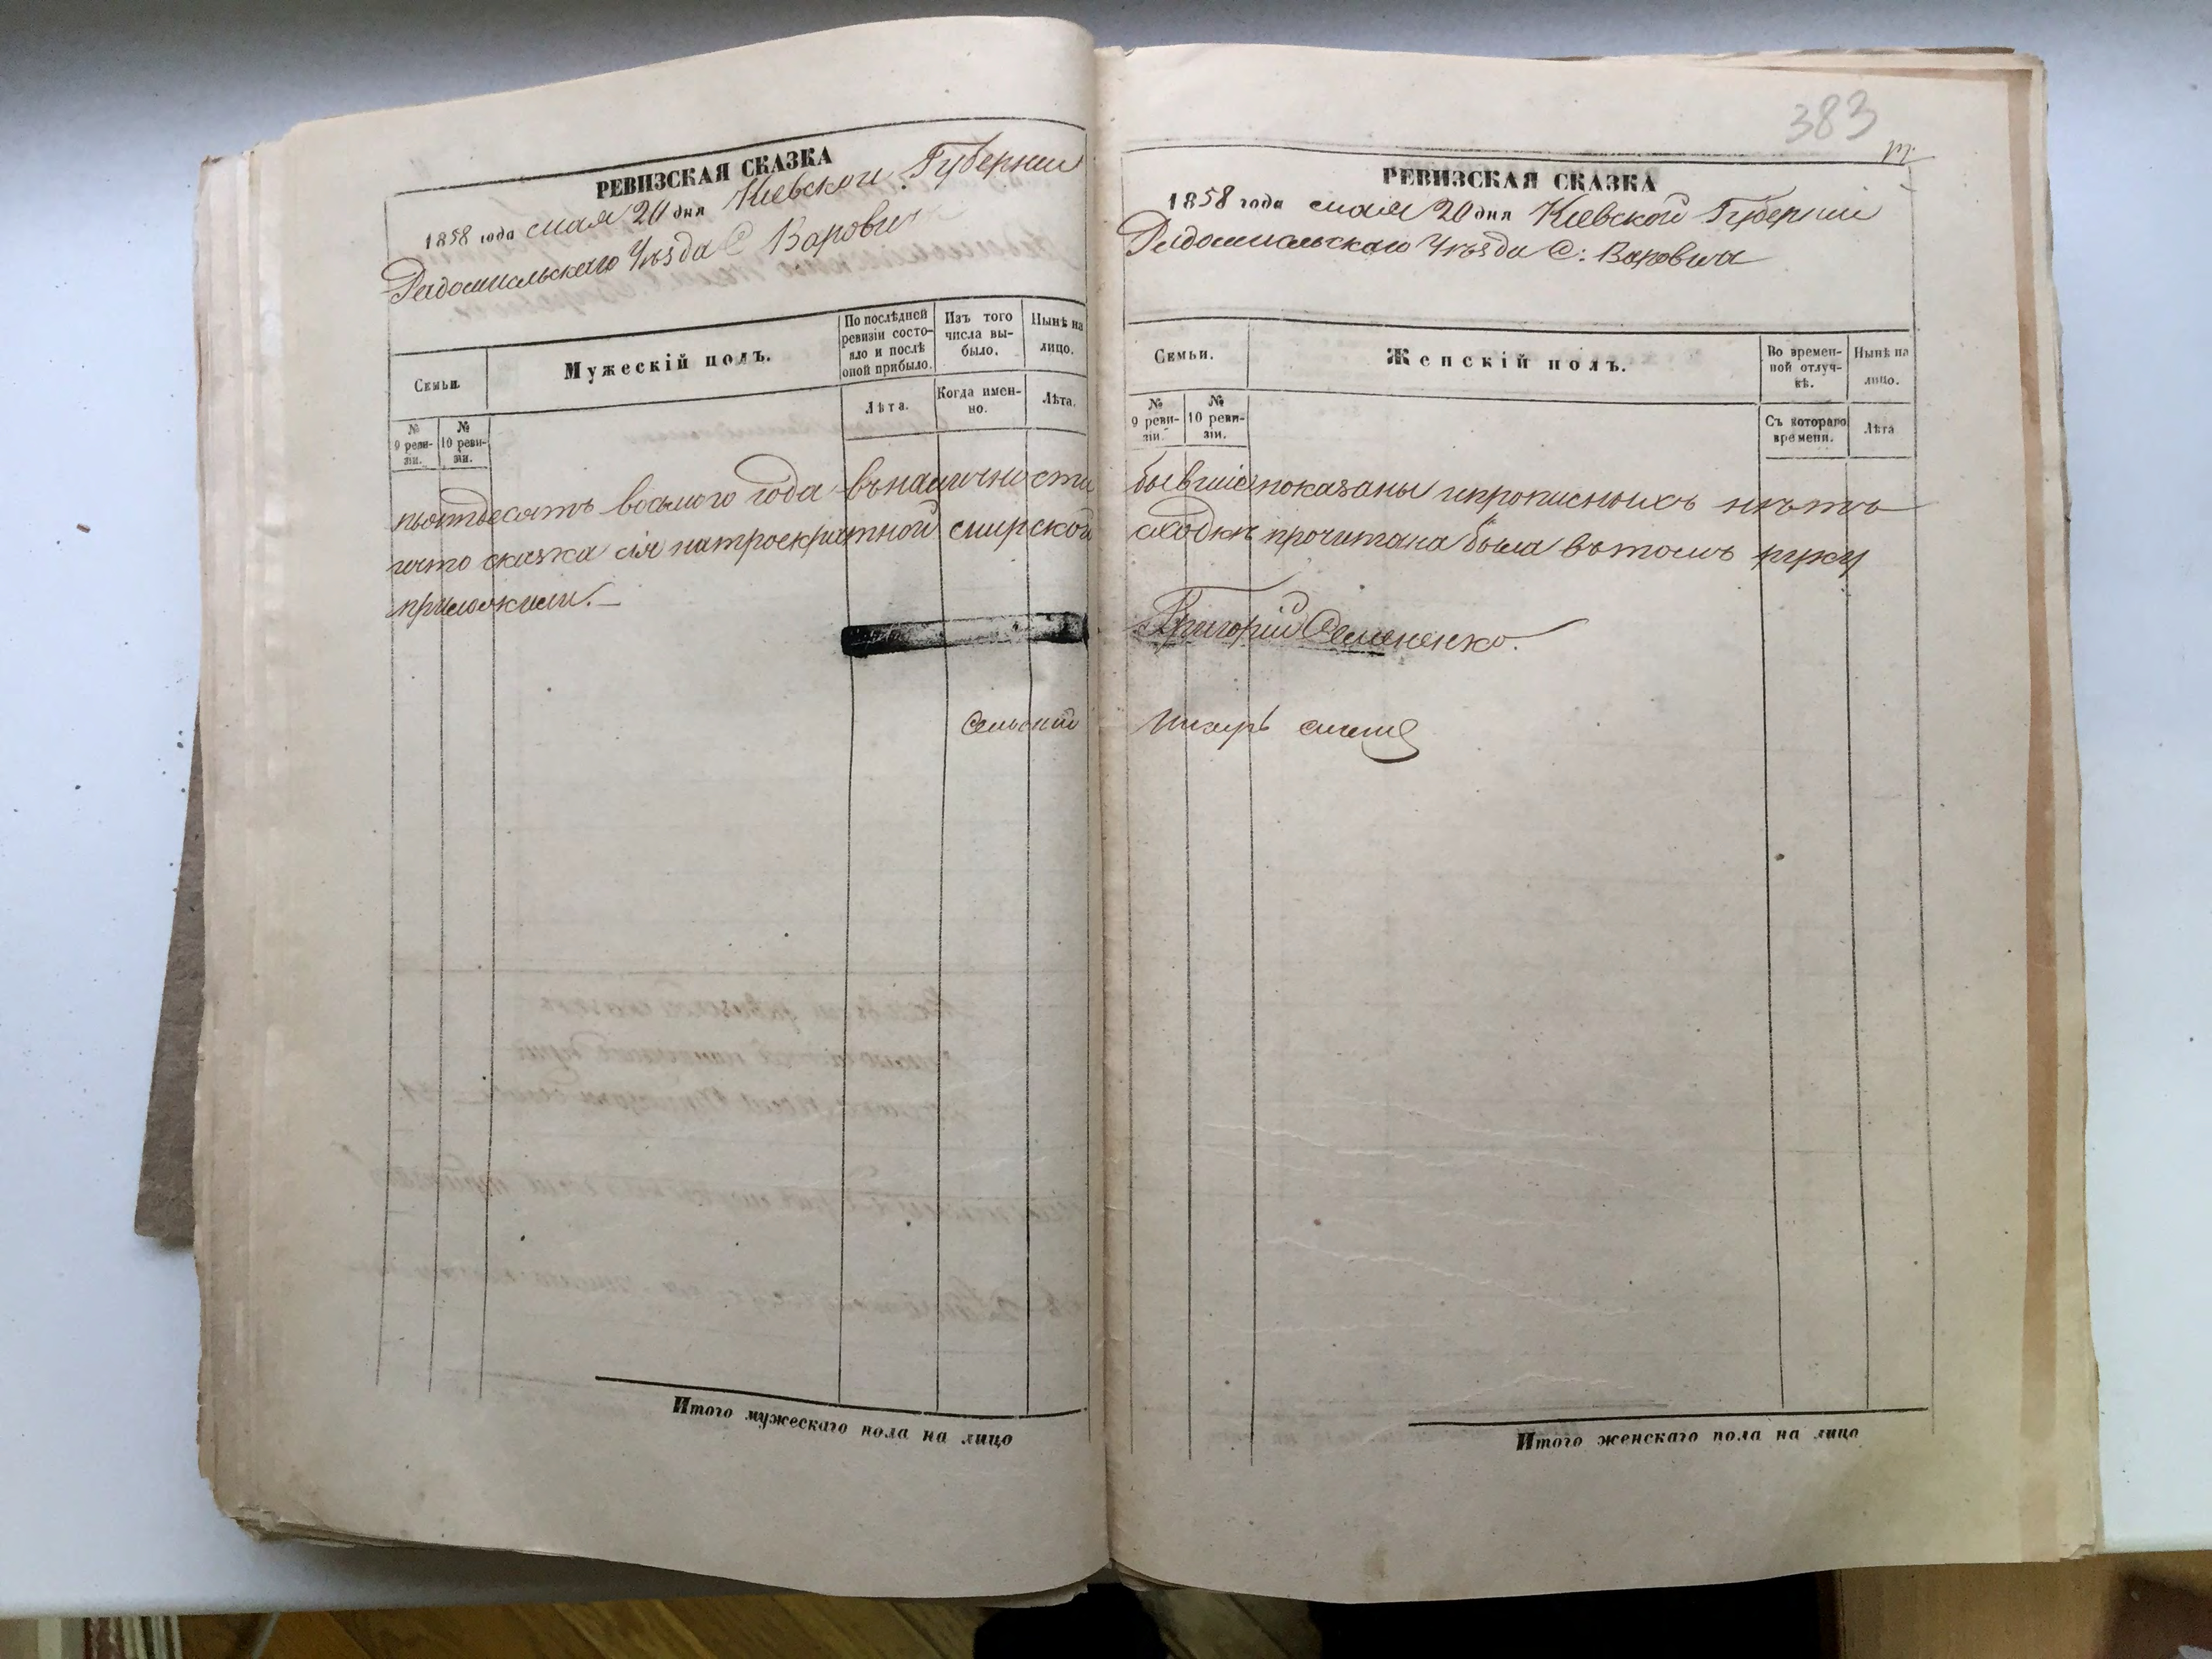 РЕВИЗСКАЯ СКАЗКА
1858 года мая 20 дня Кіевской Губерніи
Радомысльскаго Уѣзда С Варович
Семьи.
Мужескій полъ.
По послѣдней ревизіи состояло и послѣ оной прибыло.
Изъ того числа выбыло.
Нынѣ на лицо.
№ 9 ревизіи.
№ 10 ревизіи.
Лѣта.
Когда именно.
Лѣта.
пьятдесятъ восьмого года въ наличности
ичто сказка сія на троекратной смирской
приложили.
Сельскій
Итого мужескаго пола на лицо
383
РЕВИЗСКАЯ СКАЗКА
1858 года мая 20 дня Кіевской Губерніи
Радомысльскаго Уѣзда С: Варовича
Семьи.
Женскій полъ.
Во временной отлучкѣ.
Нынѣ на лицо.
№ 9 ревизіи.
№ 10 ревизіи.
Съ котораго времени.
Лѣта
бывшіе показаны ипрописныхъ нѣтъ
сходкѣ прочитана была вътомъ руку
Григорій Семененко.
Писарь
Итого женскаго пола на лицо